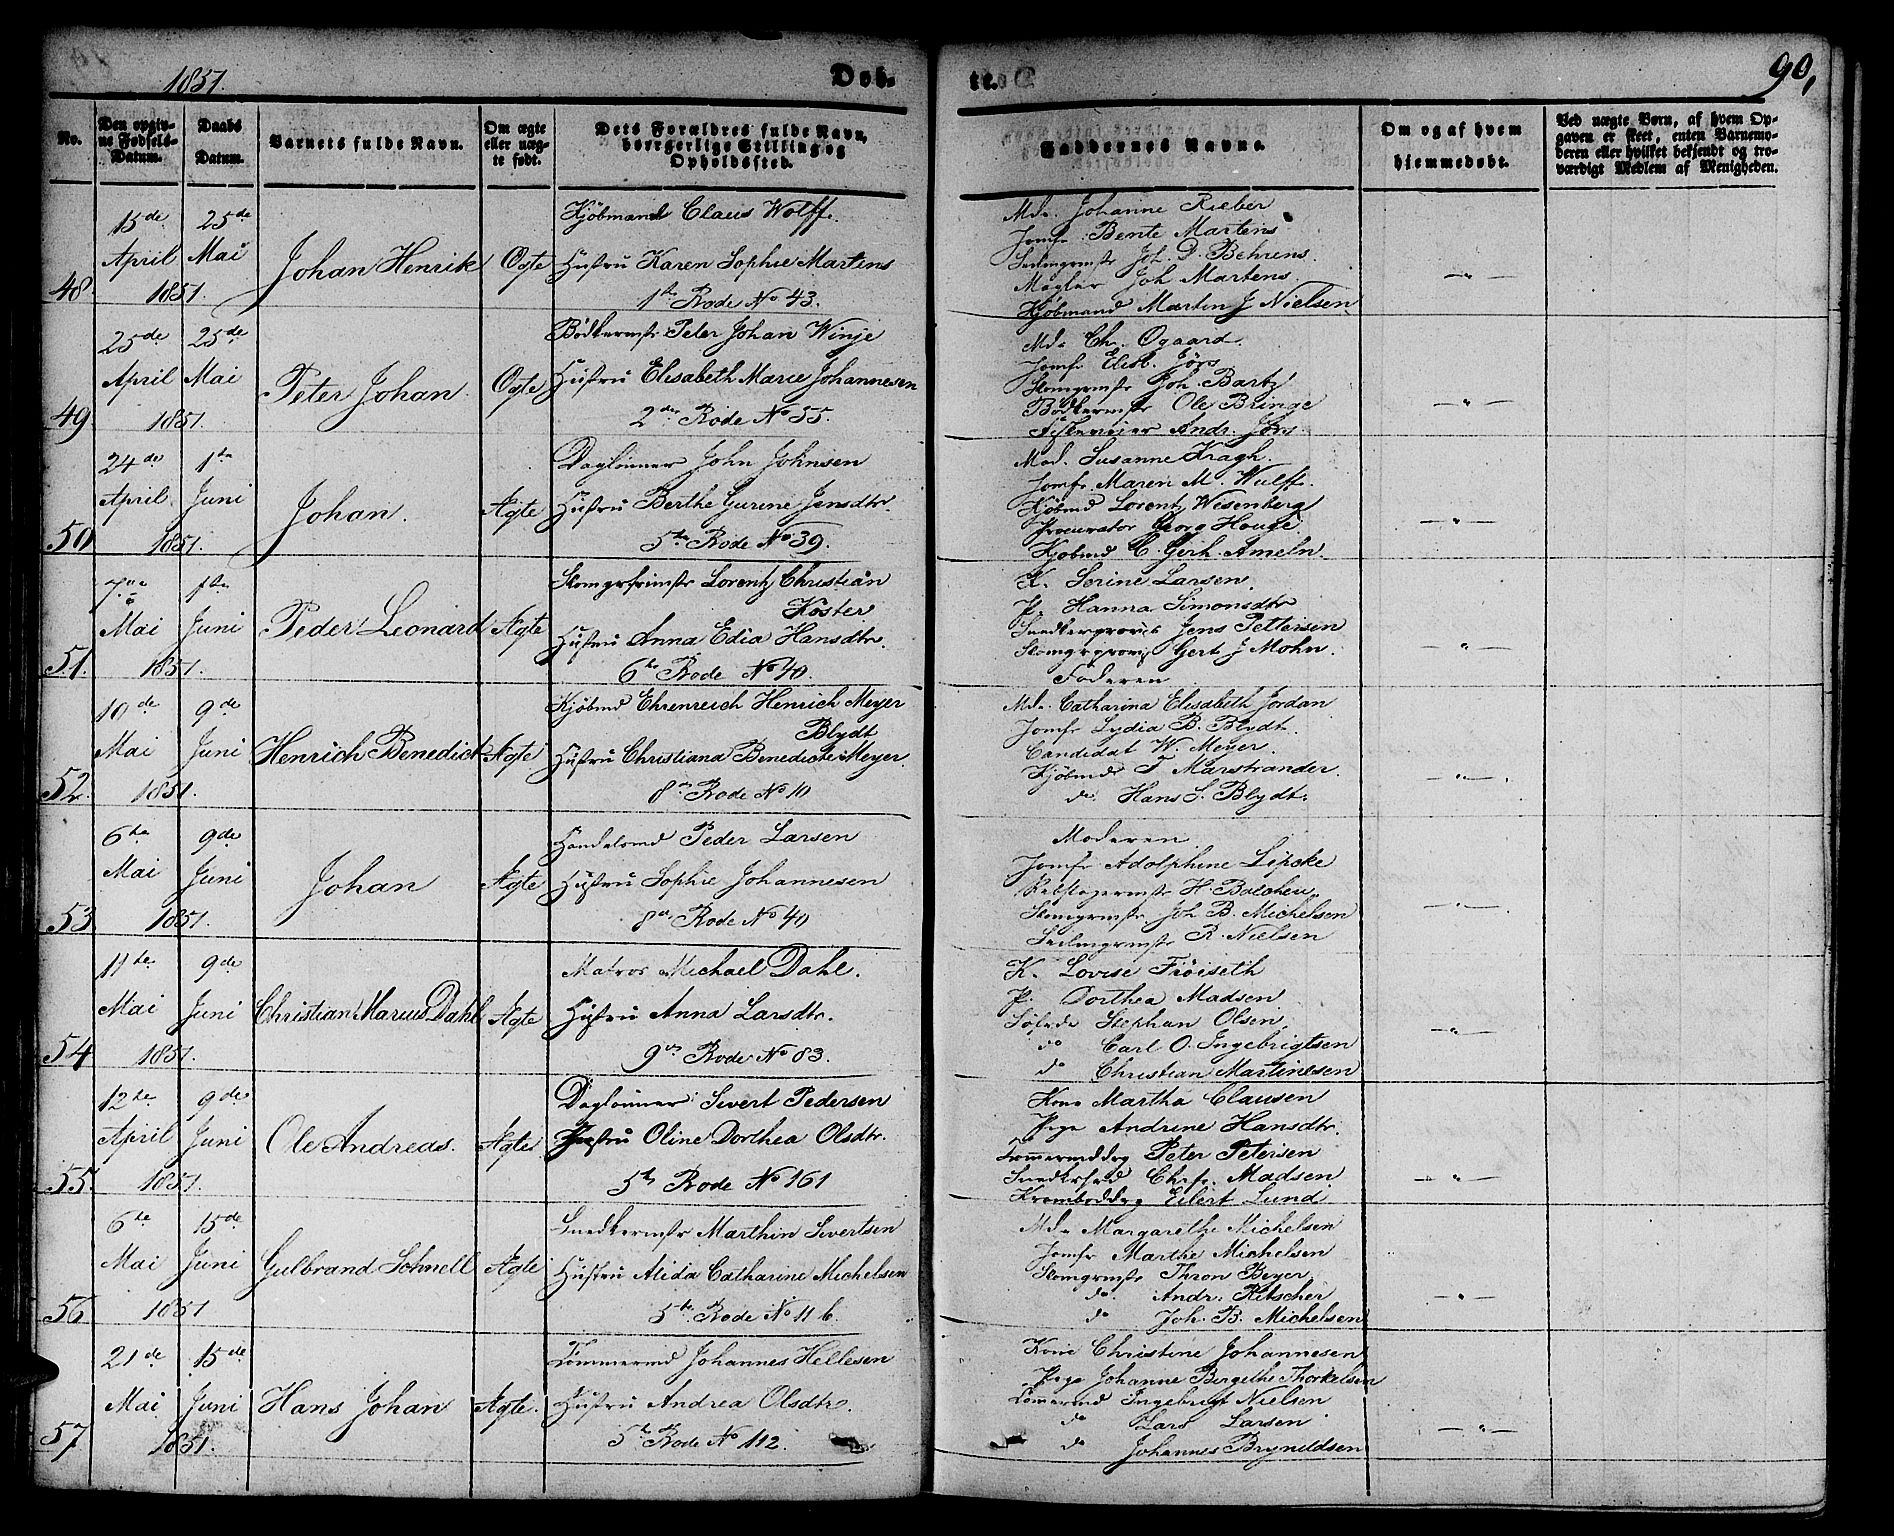 1851.
Døb-
te.
90,
No.
Den opgiv-
ne Fødsels-
Datum.
Daabs
Datum.
Barnets fulde Navn.
Om ægte
eller uæg-
te født.
Dets Forældres fulde Navn,
borgerlige Stilling og
Opholdssted.
Faddernes Navne.
Om og af hvem
hjemmedøbt.
Ved uægte Børn, af hvem Op-
gaven er skeet, enten Barnemo-
deren eller hvilket bekjendt og tro-
værdigt Medlem af Menigheden.
48
15de April 1851.
25de Mai
Johan Henrik
Ægte
Kjøbmand Claus Wolff.
Hustru Karen Sophie Martens
1ste Rode No 43.
Md. Johanne Rieber
Jomfr. Bente Martens
Seilmgrmstr Joh. D. Behrens.
Mægler Joh Martens
Kjøbmand Martin J Nielsen
49
25de April 1851.
25de Mai
Peter Johan
Ægte
Bødkermstr Peter Johan Winje
Hustru Elisabeth Marie Johannesen
2den Rode No 55.
Md. Chr. Ogaard.
Jomfr Elisb. Jørs
Skomgrmstr Joh. Bartz
Bødkermstr Ole Bringe
Andr. Jørs
50
24de April 1851.
1ste Juni
Johan.
Ægte
Daglønner John Johnsen
Hustru Berthe Gurine Jensdtr.
5te Rode No 39.
Mad. Susanne Kragh.
Jomfr Maren M. Wulff.
Kjøbmd Lorentz Wesenberg
Procurator Georg Houge
Kjøbmd C. Gerh. Ameln
51.
7de Mai 1851.
1ste Juni
Peder Leonard
Ægte
Lorentz Christian
Köster
Hustru Anna Edia Hansdtr.
6te Rode No 40.
K. Serine Larsen
P. Hanna Simonsdtr
Jens Pettersen
Gert J Mohn.
Faderen
52.
10de Mai 1851.
9de Juni
Henrich Benedict
Ægte
Kjøbmd Ehrenreich Henrich Meyer
Blydt
Hustru Christiana Benedicte Meyer.
8de Rode No 10
Md. Catharina Elisabeth Jordan
Jomfr Lydia B. Blydt.
Candidat W. Meyer.
Kjøbmd F Marstrander.
do. Hans S. Blydt.
53
6te Mai 1851.
9de Juni
Johan
Ægte
Handelsmd Peder Larsen
Hustru Sophie Johannesen
8de Rode No 40
Moderen
Jomfr Adolphine Lipcke
Rebslagermstr H. Balchen
Skomgrmstr Joh B. Michelsen
Seilmgrmstr R. Nielsen
54
11te Mai 1851.
9de Juni
Christian Marius Dahl
Ægte
Matros Michael Dahl.
Hustru Anna Larsdtr.
9de Rode No 83.
K. Lovise Frøiseth
P. Dorthea Madsen
Stephan Olsen
do Carl O. Ingebrigtsen
do Christian Martinesen
55.
12te April 1851.
9de Juni
Ole Andreas.
Ægte
Daglønner Sivert Pedersen
Hustru Oline Dorthea Olsdtr.
5te Rode No 161
Kone Martha Clausen
Pige Andrine Hansdtr.
Peter Petersen
Chr. Madsen
Eilert Lund
56
6te Mai 1851
15de Juni
Gulbrand Schnell
Ægte
Snedkermstr Marthin Sivertsen
Hustru Alida Catharine Michelsen
5te Rode No 11 b.
Md. Margarethe Michelsen
Jomfr Marthe Michelsen
Skomgrmstr Thron Beyer
do. Andr. Ritscher
do Joh. B. Michelsen
57
21de Mai 1851.
15de Juni
Hans Johan
Ægte.
Tømmermd Johannes Hellesen
Hustru Andrea Olsdtr.
5te Rode No 112.
Kone Christine Johannesen
Pige Johanne Bergithe Thorkelsen
Tømermd Ingebrigt Nielsen
do Lars Larsen
do Johannes Bryneldsen